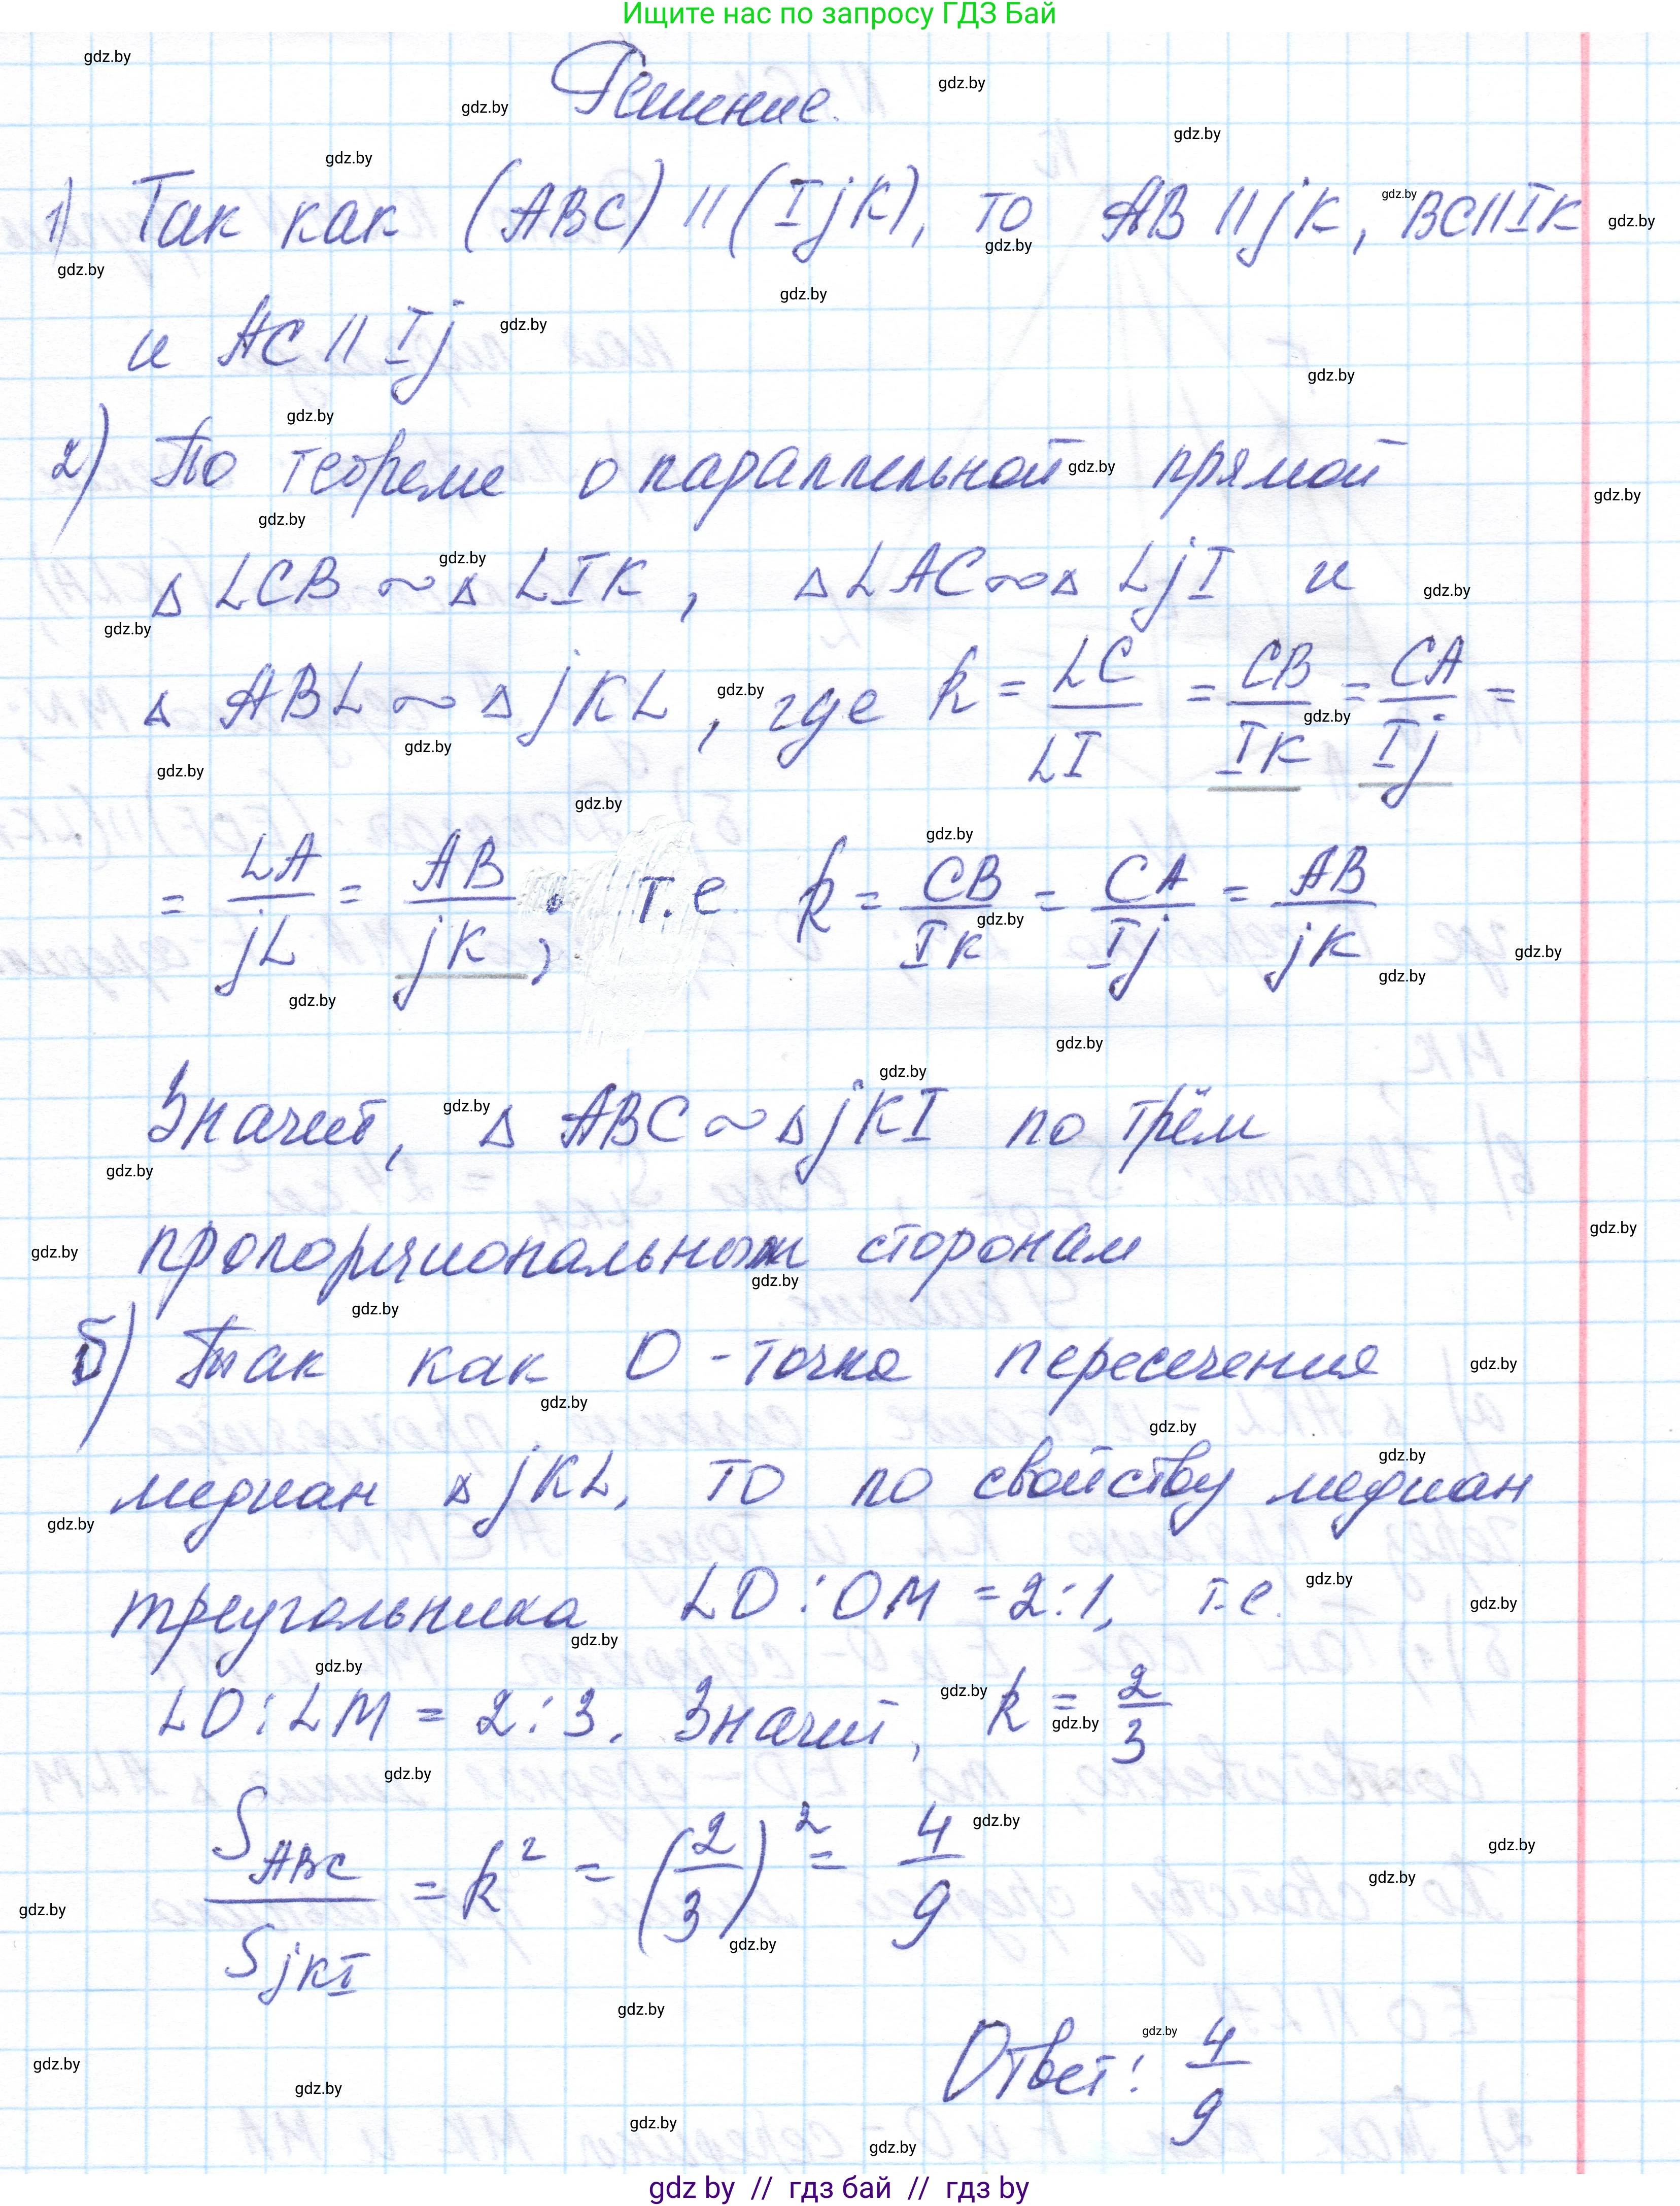 Ищите нас по запросу ГДЗ Бай
Решение.
1) Так как (ABC) || (IjK), то AB || jK, BC || IK
и AC || Ij
2) По теореме о параллельной прямой
△ LCB ~ △ LIK, △ LAC ~ △ LjI и
△ ABL ~ △ jKL, где k = LC/LI = CB/IK = CA/Ij =
= LA/jL = AB/jK, т.е. k = CB/IK = CA/Ij = AB/jK
Значит, △ ABC ~ △ jKI по трём
пропорциональным сторонам
б) Так как O - точка пересечения
медиан △ jKL, то по свойству медиан
треугольника LO : OM = 2 : 1, т.е.
LO : LM = 2 : 3. Значит, k = 2/3
S ABC / S jKI = k² = (2/3)² = 4/9
Ответ: 4/9
gdz by // гдз бай // гдз by